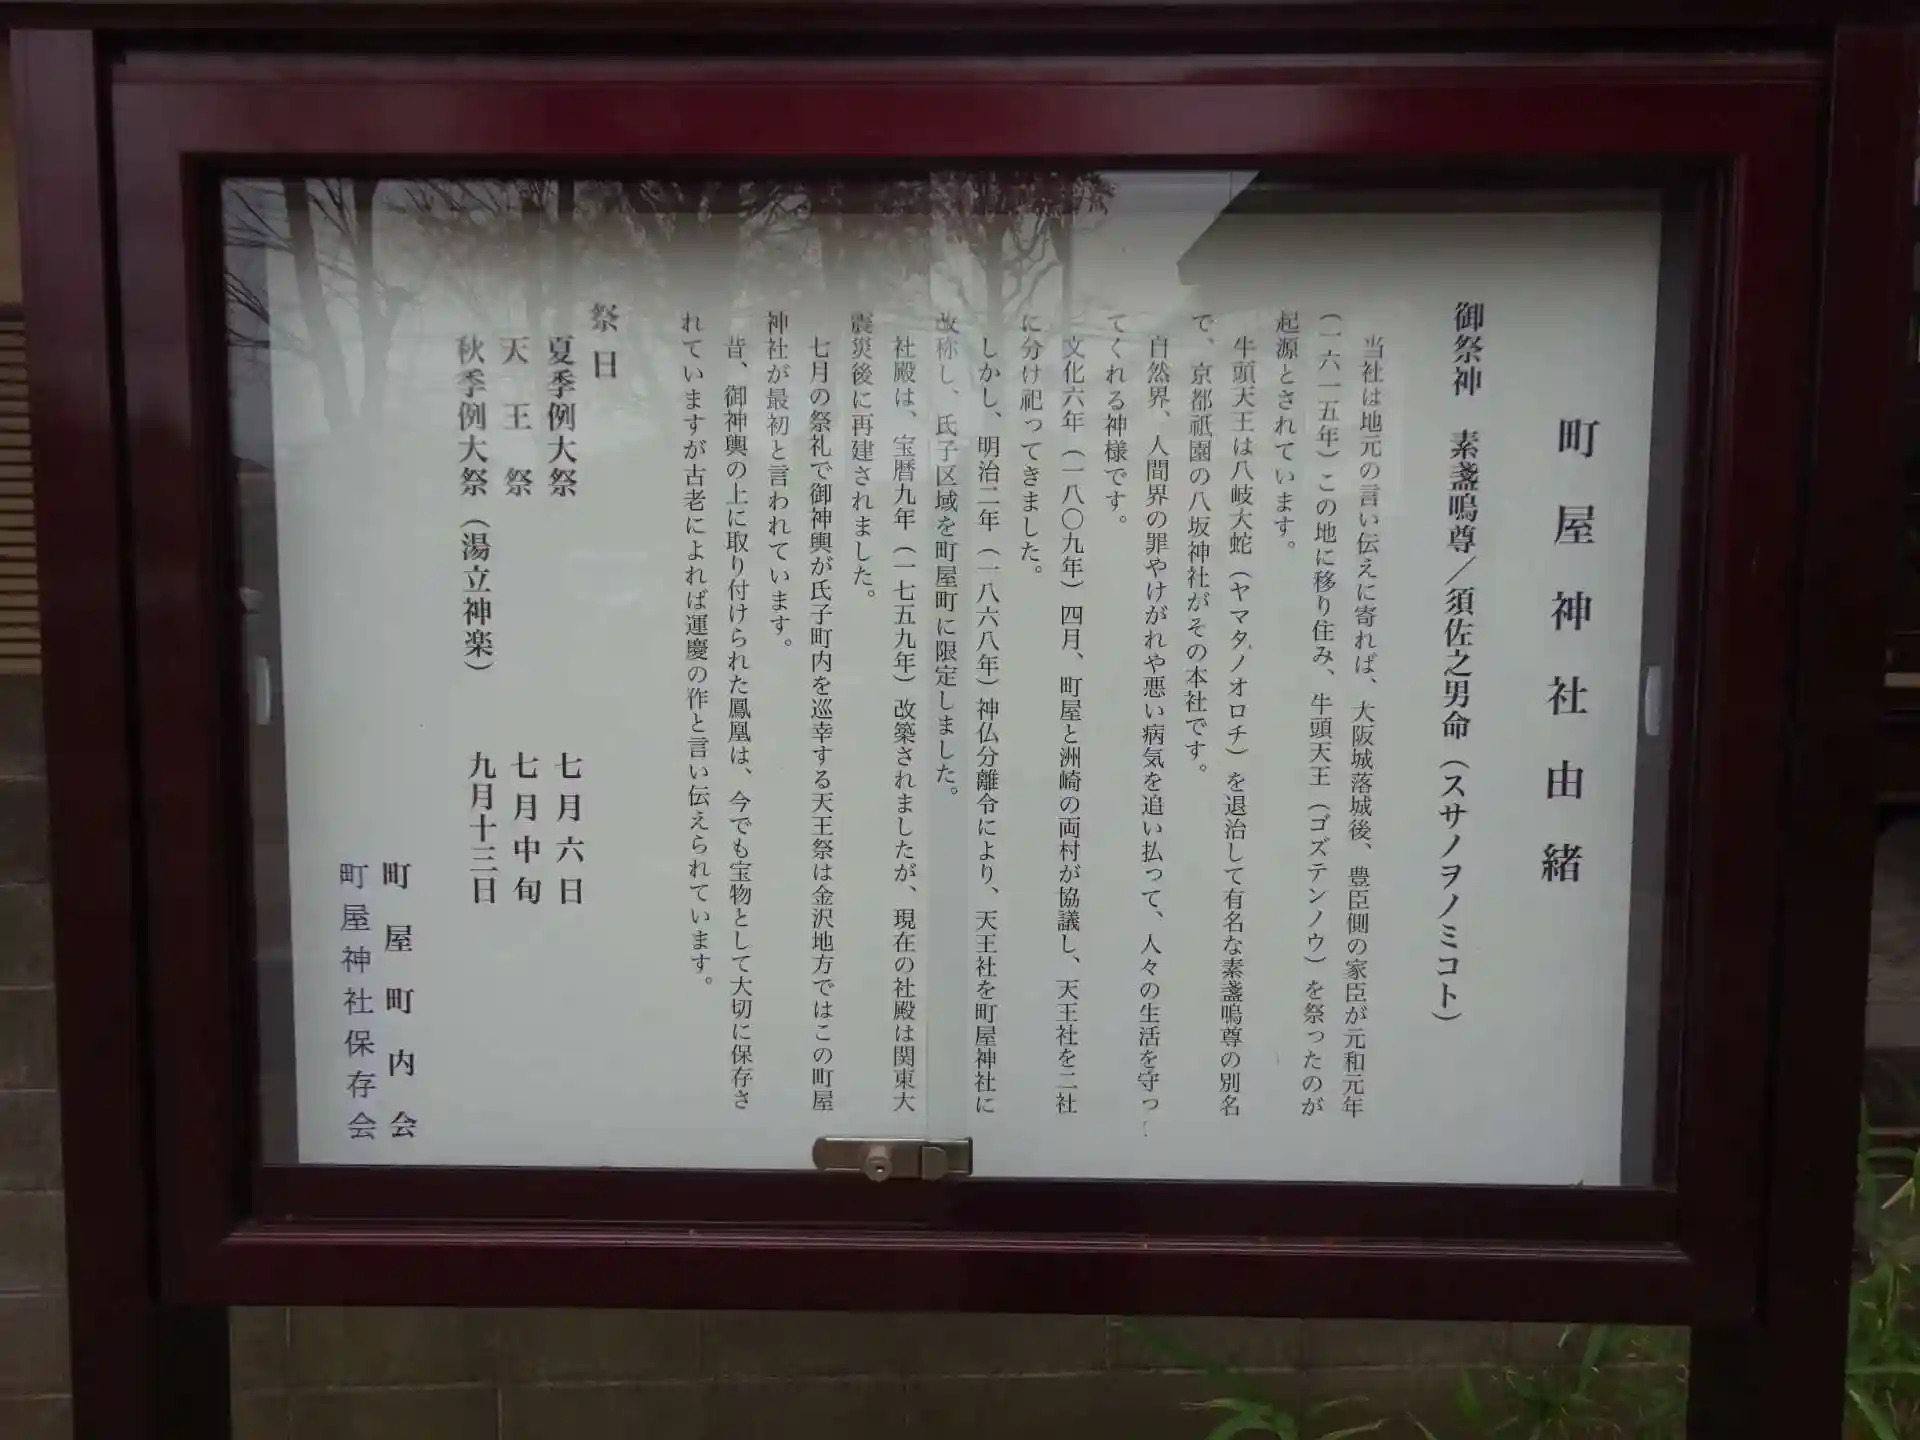 町屋神社由緒
御祭神　素盞嗚尊／須佐之男命（スサノヲノミコト）
当社は地元の言い伝えに寄れば、大阪城落城後、豊臣側の家臣が元和元年
（一六一五年）この地に移り住み、牛頭天王（ゴズテンノウ）を祭ったのが
起源とされています。
牛頭天王は八岐大蛇（ヤマタノオロチ）を退治して有名な素盞嗚尊の別名
で、京都祇園の八坂神社がその本社です。
自然界、人間界の罪やけがれや悪い病気を追い払って、人々の生活を守っ
てくれる神様です。
文化六年（一八〇九年）四月、町屋と洲崎の両村が協議し、天王社を二社
に分け祀ってきました。
しかし、明治二年（一八六八年）神仏分離令により、天王社を町屋神社に
改称し、氏子区域を町屋町に限定しました。
社殿は、宝暦九年（一七五九年）改築されましたが、現在の社殿は関東大
震災後に再建されました。
七月の祭礼で御神輿が氏子町内を巡幸する天王祭は金沢地方ではこの町屋
神社が最初と言われています。
昔、御神輿の上に取り付けられた鳳凰は、今でも宝物として大切に保存さ
れていますが古老によれば運慶の作と言い伝えられています。
祭日
夏季例大祭　七月六日
天王祭　七月中旬
秋季例大祭（湯立神楽）　九月十三日
町屋町内会
町屋神社保存会